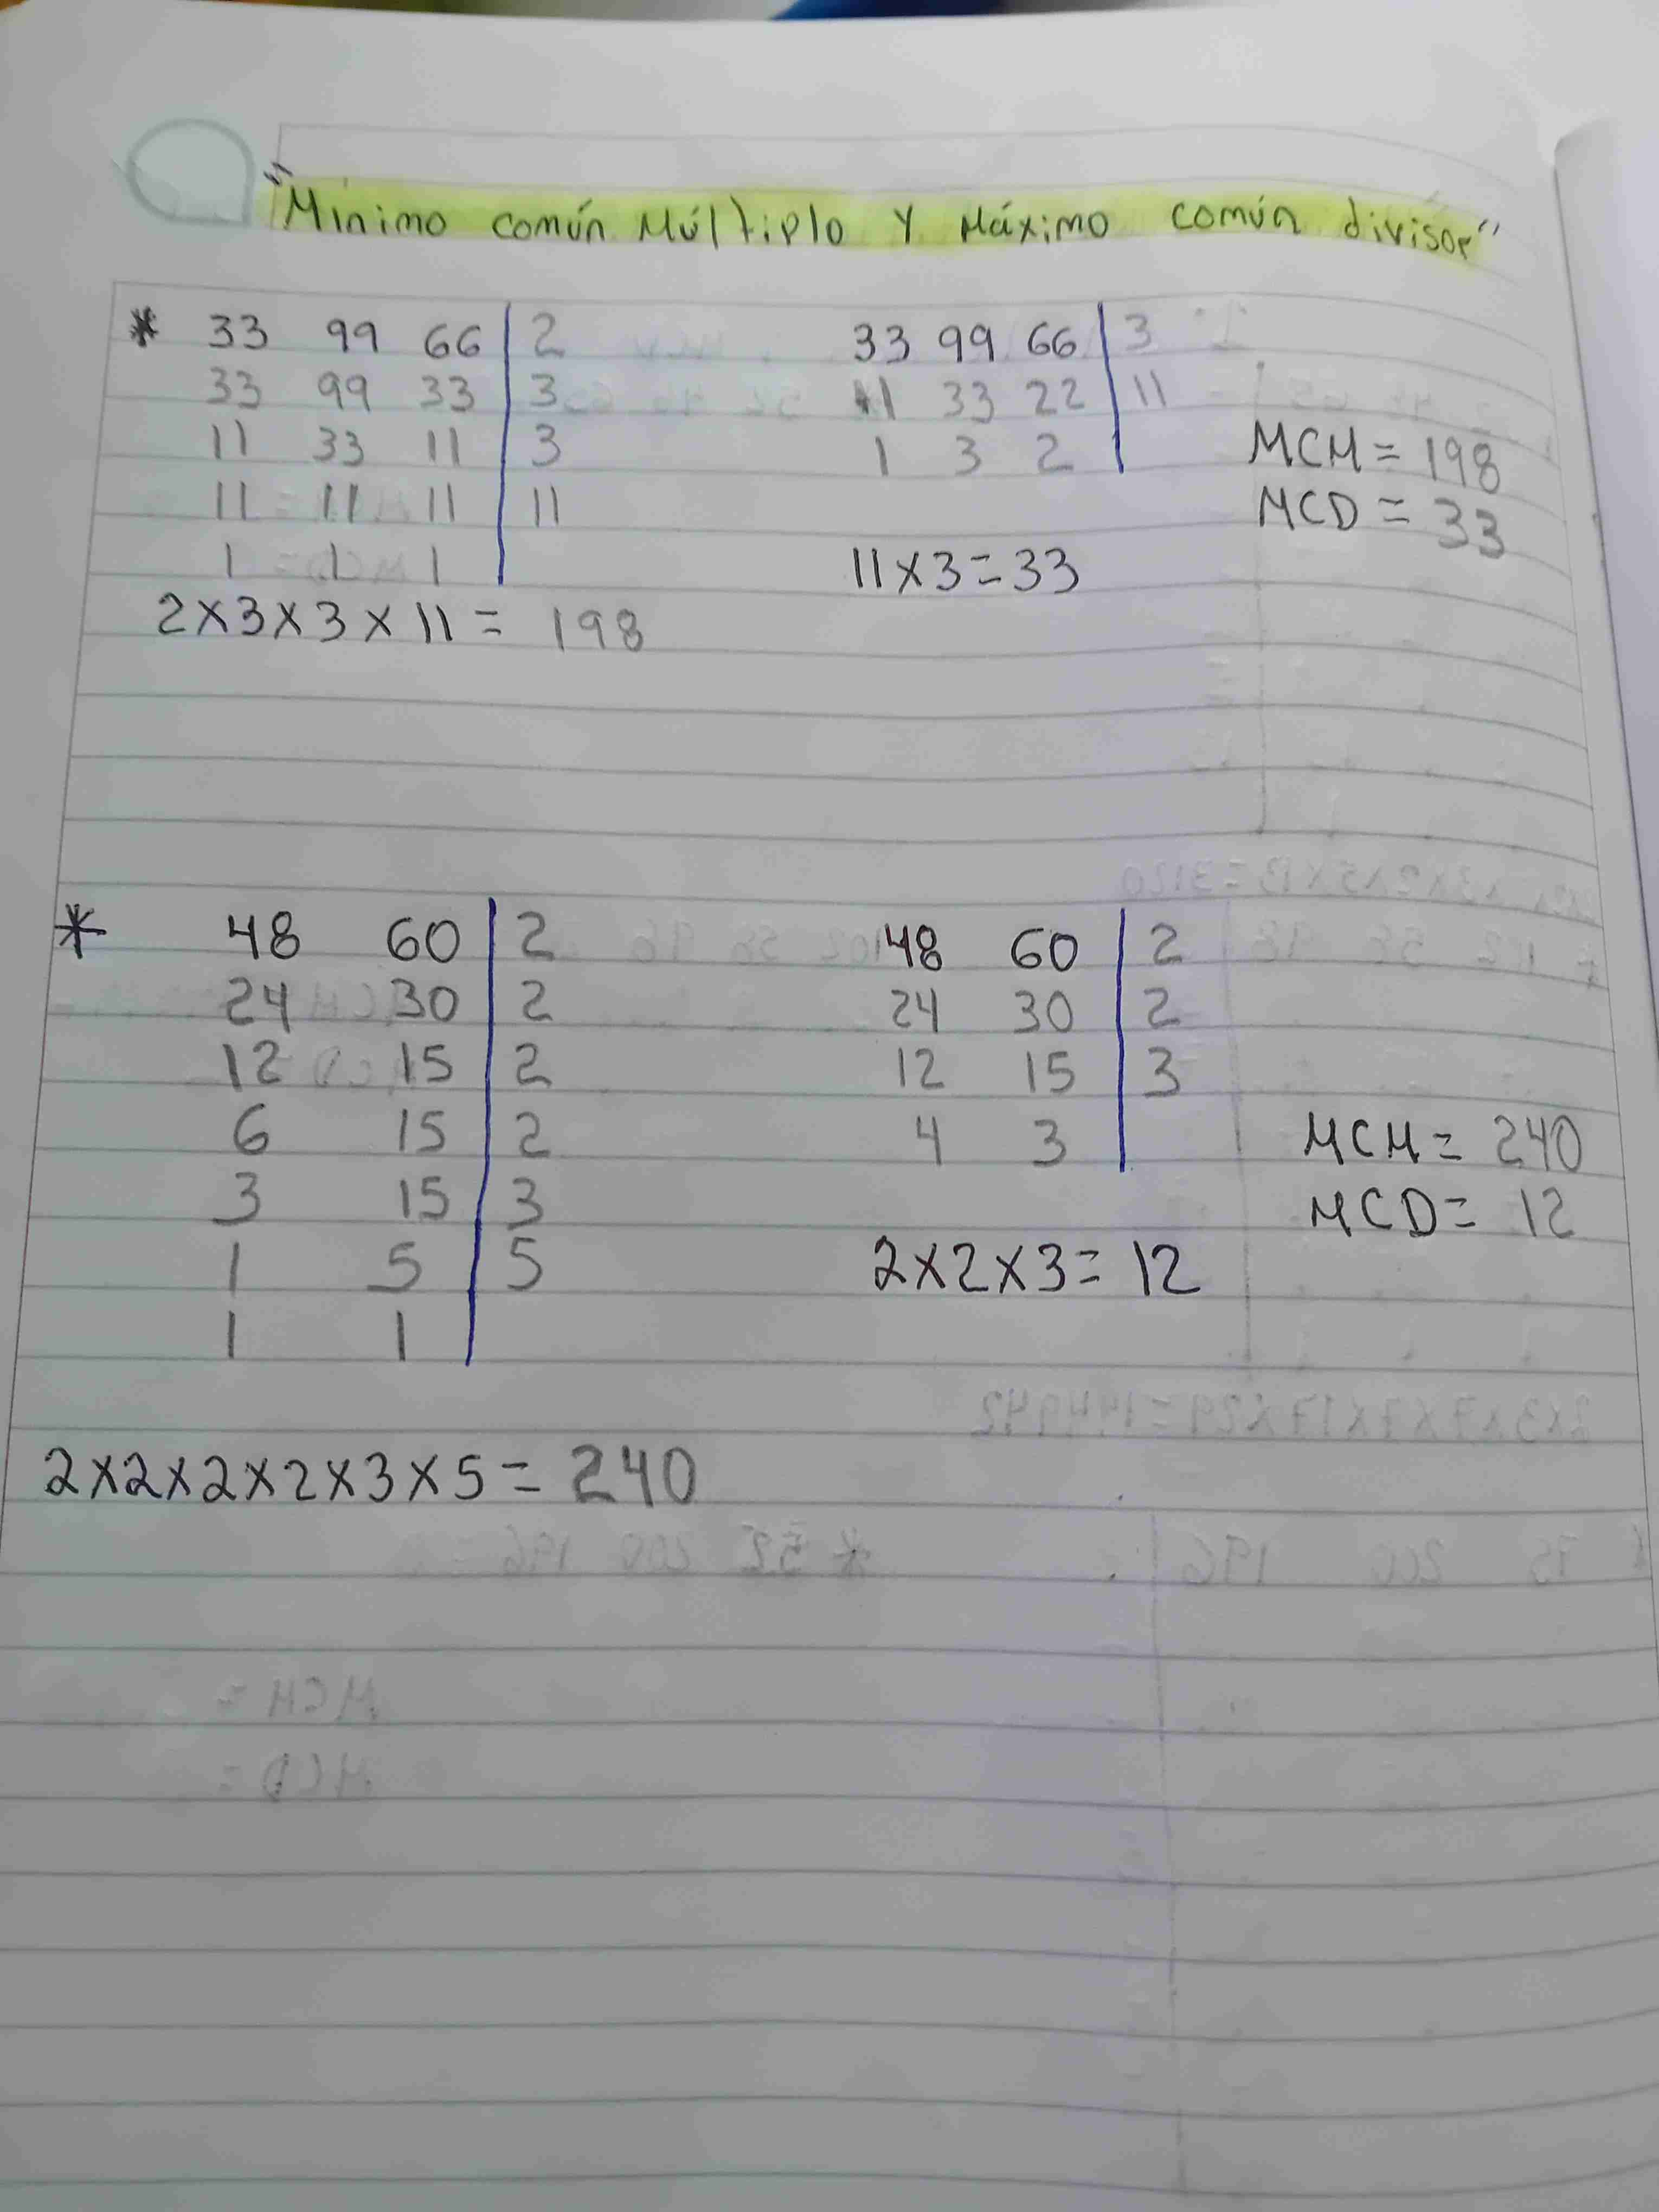 "Minimo común Múltiplo Y Máximo común divisor"
* 33 99 66 | 2
33 99 33 | 3
11 33 11 | 3
11 11 11 | 11
1 1 1
2x3x3x11= 198
33 99 66 | 3
11 33 22 | 11
1 3 2
11x3=33
MCM=198
MCD=33
* 48 60 | 2
24 30 | 2
12 15 | 2
6 15 | 2
3 15 | 3
1 5 | 5
1 1
2x2x2x2x3x5=240
48 60 | 2
24 30 | 2
12 15 | 3
4 3
2x2x3=12
MCM=240
MCD=12